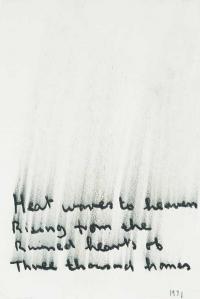 Heat waves to heaven
Rising from the
Ruined hearts of
Three thousand homes
1991